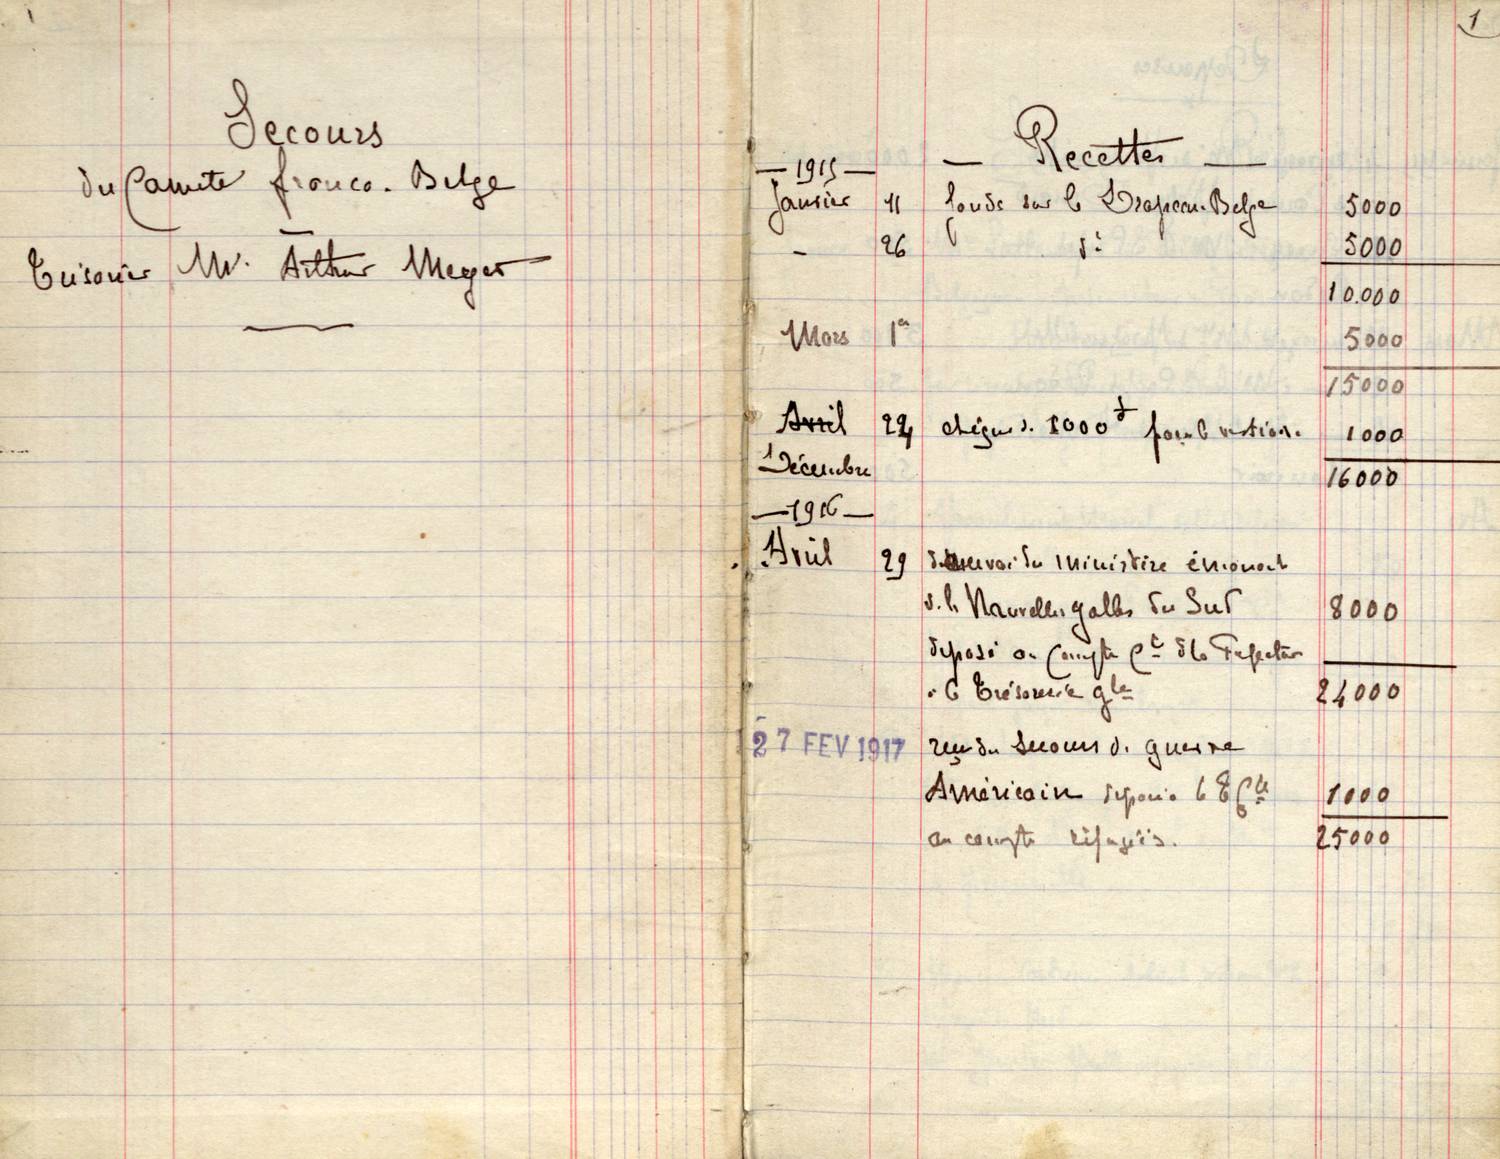 Secours
du Comité franco-Belge
Trésorier Mr. Arthur Meyer
1
— Recettes —
— 1915 —
Janvier 11 fonds sur le Drapeau Belge 5000
- 26 do 5000
10.000
Mars 1er 5000
15000
Avril 24 chèque de 1000f pour le 1000
Décembre 16000
— 1916 —
Avril 29 envoi du ministère émanant
de la Nouvelles galles du Sud 8000
déposé au compte Ct de la
à la Trésorerie gle 24000
27 FEV 1917 reçu du Secours de guerre
Américain déposé à la 1000
au compte réfugiés. 25000